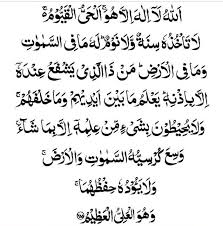 اَللّٰهُ لَآ اِلٰهَ اِلَّا هُوَ ۚ اَلْحَیُّ الْقَیُّوْمُ ۚ
لَا تَاْخُذُهٗ سِنَةٌ وَّلَا نَوْمٌ ؕ لَهٗ مَا فِی السَّمٰوٰتِ
وَمَا فِی الْاَرْضِ ؕ مَنْ ذَا الَّذِیْ یَشْفَعُ عِنْدَهٗٓ
اِلَّا بِاِذْنِهٖ ؕ یَعْلَمُ مَا بَیْنَ اَیْدِیْهِمْ وَمَا خَلْفَهُمْ ۚ
وَلَا یُحِیْطُوْنَ بِشَیْءٍ مِّنْ عِلْمِهٖٓ اِلَّا بِمَا شَآءَ ۚ
وَسِعَ كُرْسِیُّهُ السَّمٰوٰتِ وَالْاَرْضَ ۚ
وَلَا یَـُٔوْدُهٗ حِفْظُهُمَا ۚ
وَهُوَ الْعَلِیُّ الْعَظِیْمُ